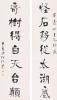 怪石移從太湖底
奇樹得自天台顛